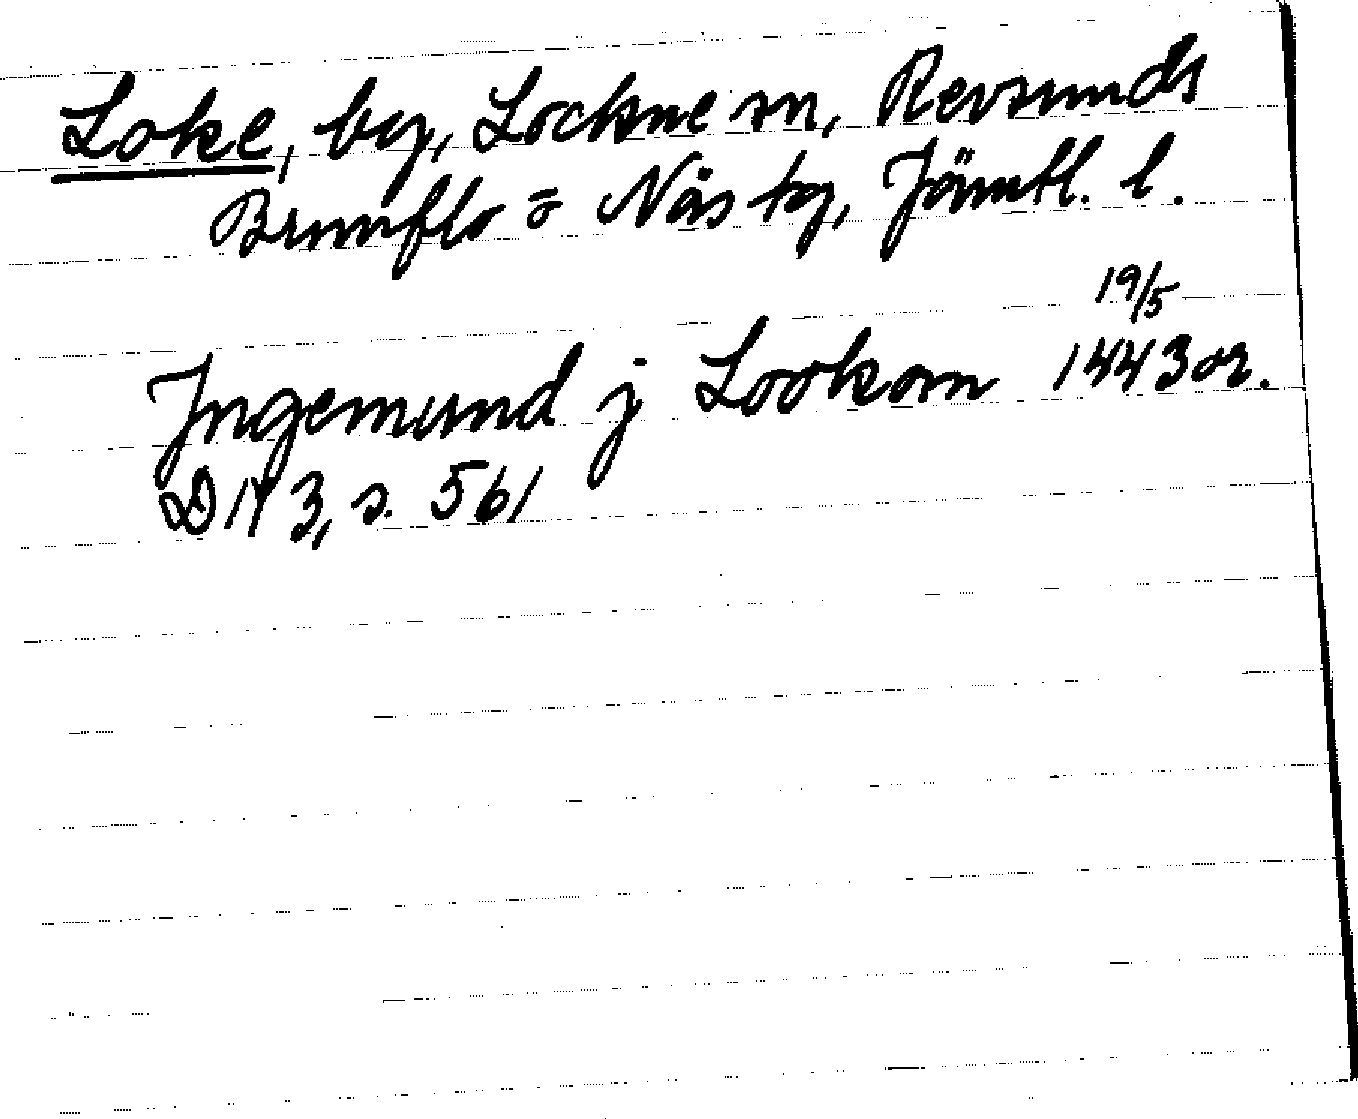 Loke, by, Lockne sn, Revsunds
Brunflo o Näs tg, Jämtl. l.
19/5
Jngemund j Lookom 1443 or.
DN 3, s. 561